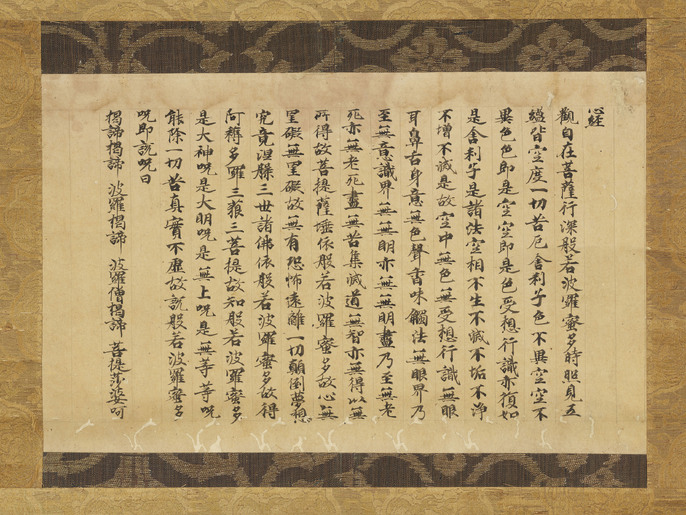 心経
觀自在菩薩行深般若波羅蜜多時照見五
蘊皆空度一切苦厄舍利子色不異空空不
異色色即是空空即是色受想行識亦復如
是舍利子是諸法空相不生不滅不垢不浄
不増不滅是故空中無色無受想行識無眼
耳鼻舌身意無色聲香味觸法無眼界乃
至無意識界無無明亦無無明盡乃至無老
死亦無老死盡無苦集滅道無智亦無得以無
所得故菩提薩埵依般若波羅蜜多故心無
罣礙無罣礙故無有恐怖遠離一切顛倒夢想
究竟涅槃三世諸佛依般若波羅蜜多故得
阿耨多羅三藐三菩提故知般若波羅蜜多
是大神呪是大明呪是無上呪是無等等呪
能除一切苦真實不虚故説般若波羅蜜多
呪即説呪曰
揭諦揭諦 波羅揭諦 波羅僧揭諦 菩提莎婆呵